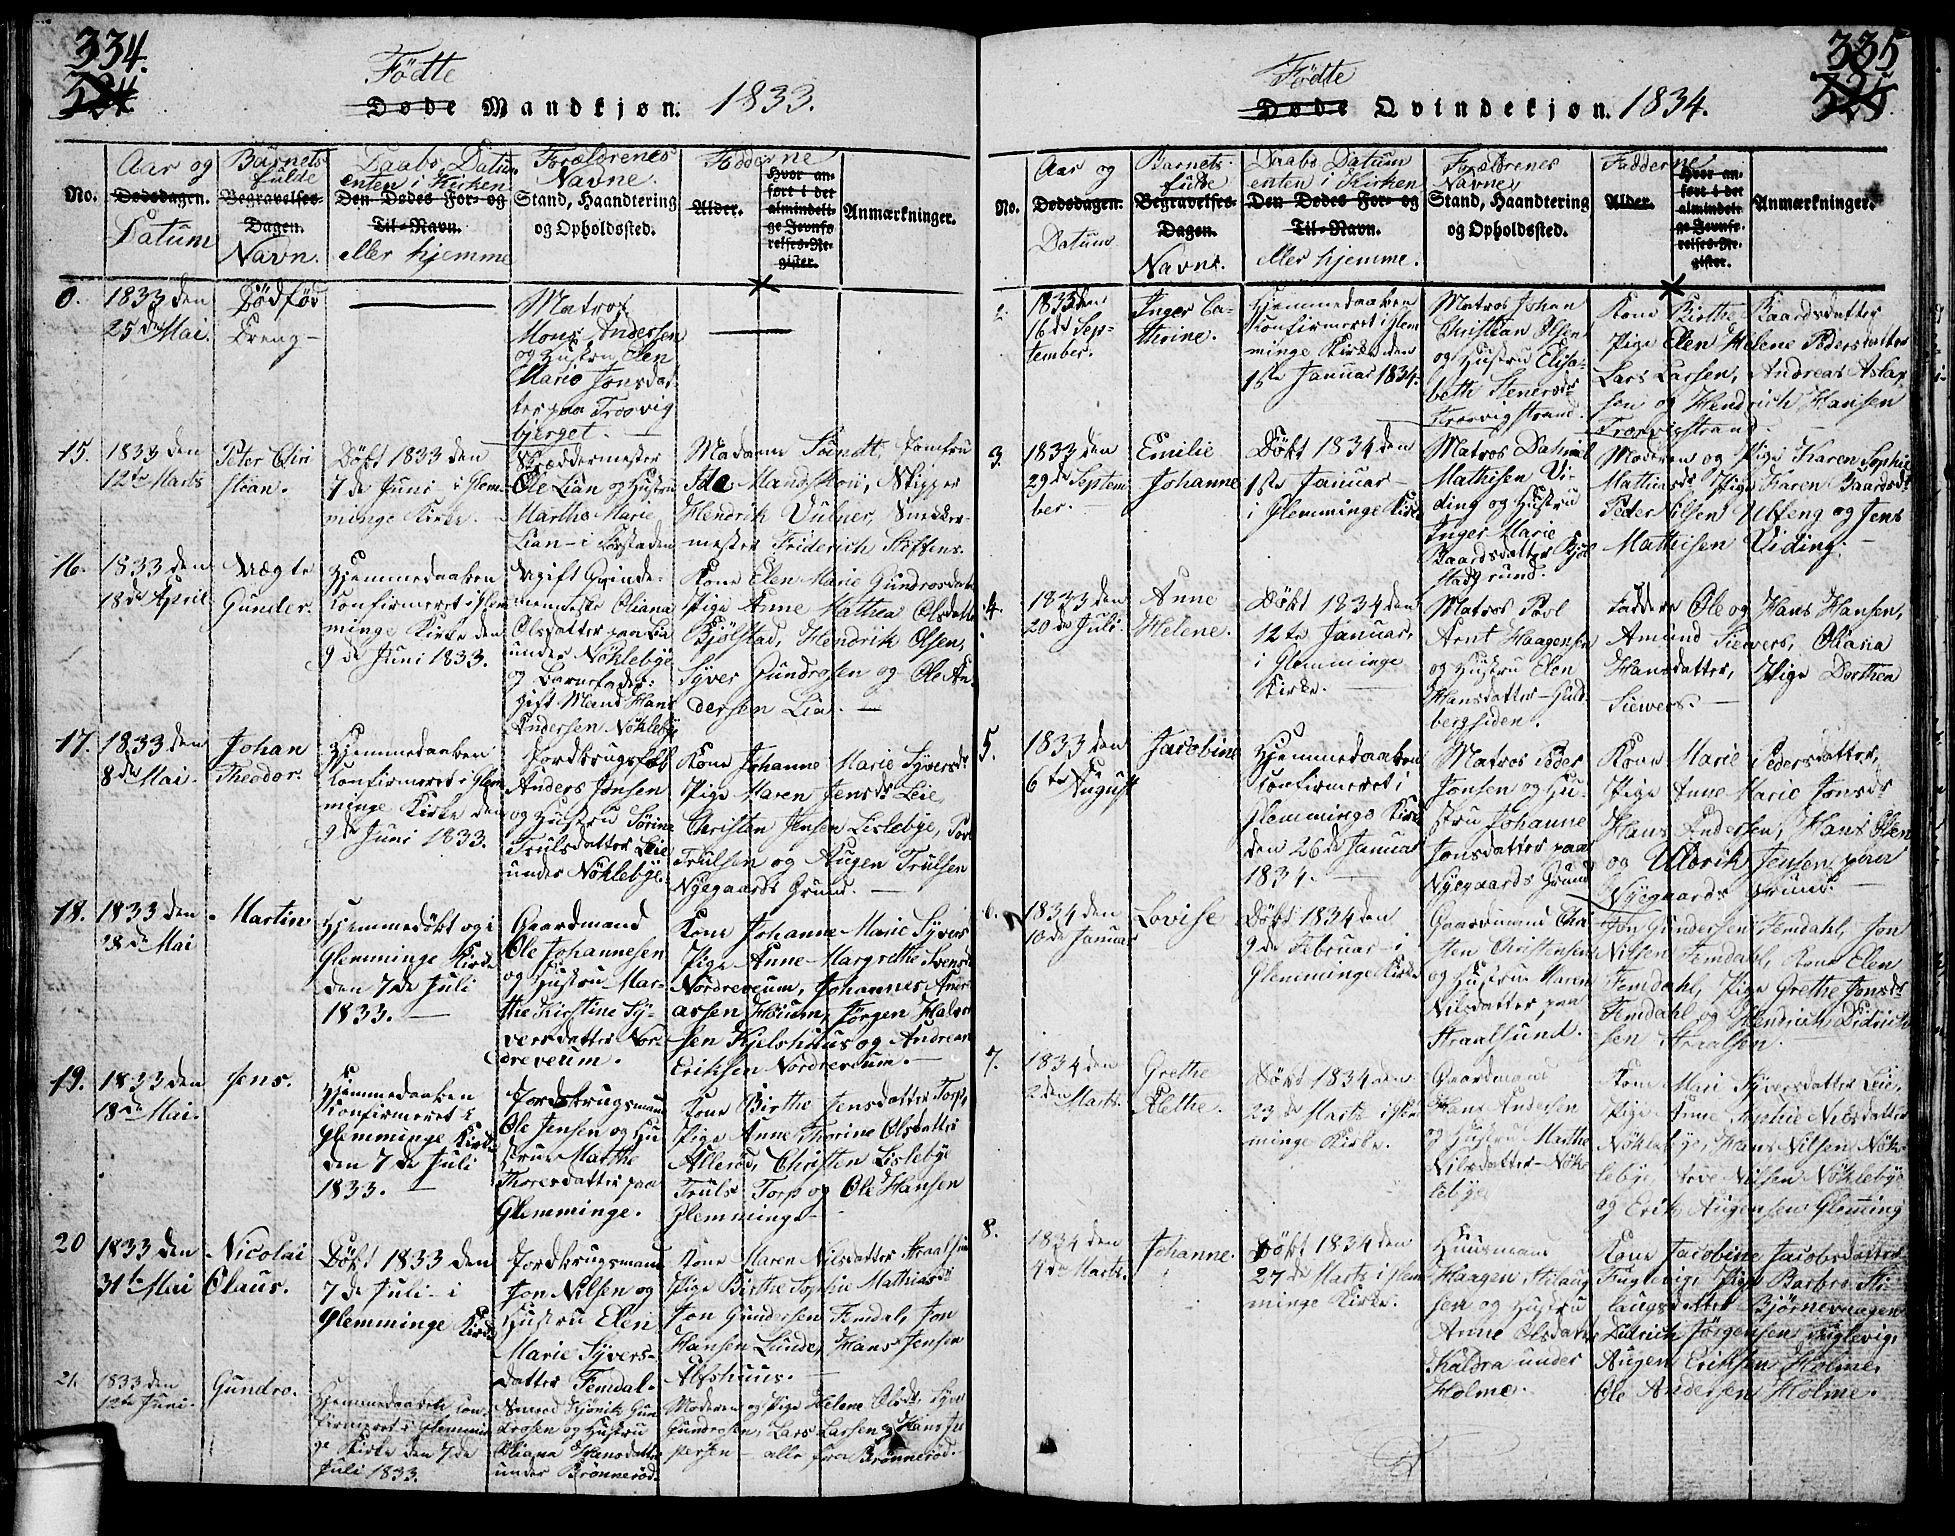 334.
324.
Födte
Döde Mandkjøn. 1833.
No.
Aar og
Dødsdagen.
Datum
Barnets
fulde
Begravelses-
Dagen.
Navn.
Daabs Datum
enten i Kirken
Den Dødes For- og
Til-Navn.
eller hjemme
Forældrenes
Navne.
Stand, Haandtering
og Opholdssted.
Fadderne
Alder.
Hvor an-
ført i det
almindeli-
ge Jevnfø-
relses-Re-
gister.
Anmærkninger.
0.
1833 den
25de Mai.
Dödfød
Dreng
Matros
Mons Andersen
og Hustru Elen
Marie Jonsdat-
ter paa Trosvig
bjerget.
15.
1833 den
12te Marts
Peter Chri
stian.
Döbt 1833 den
7de Juni i Glem-
minge Kirke.
Skræddermester
Ole Lian og Hustru
Marthe Marie
Lian i Forstaden
Madame Svendt, Jomfru
Ida Mandskou, Skipper
Hendrik Dubner, Snekker-
mester Friderich Steffens.
16.
1833 den
18de April
Nægte
Gunder.
Hjemmedaaben
Konfirmeret i Glem
minge Kirke den
9de Juni 1833.
Ugift Qvinde-
menneske Oliana
Olsdatter paa Lia
under Nöklebye
og Barnefader
Gift Mand Hans
Andersen Nöklebye
Kone Elen Marie Gundrosdatter
Pige Anne Mathea Olsdatter
Kjölstad, Hendrik Olsen,
Syver Gundrosen og Ole An-
dersen Lia.
17.
1833 den
8de Mai.
Johan
Theodor.
Hjemmedaaben
Konfirmeret i Glem
minge Kirke den
9de Juni 1833.
Jordbrugsfolk
Anders Jensen
og Hustru Sörine
Trulsdatter Leie
under Nöklebye.
Kone Johanne Marie Syversdr
Pige Maren Jensdr Leie,
Christen Jensen Lislebye, Povl
Trulsen og Augen Trulsen
Nyegaards Grund.
18.
1833 den
28de Mai
Martin
Hjemmedöbt og i
Glemminge Kirke
den 7de Juli
1833.
Gaardmand
Ole Johannesen
og Hustru Mar-
the Kirstine Sy-
versdatter Nor-
dreveum.
Kone Johanne Marie Syvers
Pige Anne Margrethe Svensdr
Nordreveum, Johannes Andr
assen Houm, Jørgen Halvor
sen Kjelshuus og Andreas
Eriksen Nordreveum.
19.
1833 den
18de Mai.
Jens.
Hjemmedaaben
Konfirmeret i
Glemminge Kirke
den 7de Juli
1833.
Jordbrugsmand
Ole Jensen og Hu
strue Marthe
Thoresdatter paa
Glemminge.
Kone Birthe Jensdatter Torp,
Pige Anne Thorine Olsdatter
Alleröd, Christen Lislebye
Truls Torp og Ole Hansen
Glemminge
20
1833 den
31te Mai
Nicolai
Claus.
Döbt 1833 den
7de Juli i
Glemminge Kirke
Jordbrugsmand
Jon Nilsen og
Hustru Elen
Marie Syvers-
datter Femdal.
Kone Maren Nilsdatter Straalsund
Pige Birthe Sophie Mathiasdr
Jon Gundersen Femdal, Jon
Hansen Lunde, Hans Jensen
Alfshuus.
21.
1833 den
12te Juni.
Gundro.
Hjemmedaaben kon-
firmeret i Glemmin
ge Kirke den 7de
Juli 1833.
Gun
drosen og Hustru
Oliana Hansdatter
under Brønneröd.
Moderen og Pige Helene Olsdr, Syver
Gundrosen, Lars Larsen og Hans Je
persen alle fra Brønneröd.
335
325
Födte
Döde Qvindekjøn. 1834.
No.
Aar og
Dødsdagen.
Datum
Barnets
fulde
Begravelses-
Dagen.
Navne.
Daabs Datum
enten i Kirken
Den Dødes For- og
Til-Navn.
eller hjemme.
Forældrenes
Navne
Stand, Haandtering
og Opholdssted.
Fadderne
Alder.
Hvor an-
ført i det
almindeli-
ge Jevnfø-
relses-Re-
gister.
Anmærkninger.
2.
1833 den
16de Sep-
tember.
Inger Ca-
thrine.
Hjemmedaaben
Konfirmeret i Glem
minge Kirke den
1ste Januar 1834.
Matros Johan
Christian Olsen
og Hustru Elisa-
beth Stenersdr
Trosvigstrand.
Kone Birthe Baardsdatter
Pige Elen Helene Pedersdatter
Lars Larsen, Andreas Aslak
sen og Hendrich Hansen
Trosvigstrand.
3.
1833 den
29de Septem
ber.
Emilie
Johanne
Döbt 1834 den
1ste Januar
i Glemminge Kirke
Matros Daniel
Mathisen Vi-
ding og Hustru
Inger Marie
Baardsdatter Kjöl
stadgrund.
Moderen og Pige Karen Sophie
Mathiasdr Pige Karen Baardsdr
Peder Nilsen Ufseng og Jens
Mathisen Viding.
4.
1833 den
20de Juli
Anne
Helene.
Döbt 1834 den
12te Januar,
i Glemminge
Kirke.
Matros Povl
Arnt Haagensen
og Hustru Elen
Hansdatter Guld-
bergsiden.
Faddere Ole og Hans Hansen,
Amund Siewers, Oliana
Hansdatter, Pige Dorthea
Siewers.
5.
1833 den
6te August
Jacobine
Hjemmedaaben
Konfirmeret i
Glemminge Kirke
den 26de Januar
1834.
Matros Peder
Jonsen og Hu-
stru Johanne
Jonsdatter paa
Nyegaards Grund
Kone Marie Pedersdatter,
Pige Anne Marie Jonsdr
Hans Andersen, Hans Olsen
og Uldrik Jensen paa
Nyegaards Grund.
6.
1834 den
10de Januar
Lovise
Döbt 1834 den
9de Februar i
Glemminge Kirke
Gaardmand Chri
sten Christensen
og Hustru Maren
Nilsdatter paa
Straalsund.
Jon Gundersen Femdahl, Jon
Nilsen Femdahl, Kone Elen
Femdahl, Pige Grethe Jonsdr
Femdahl og Hendrich Didrich
sen Straalsen.
7.
1834 den
2den Marts
Grethe
Elethe.
Döbt 1834 den
23de Marts i Glem
minge Kirke.
Gaardmand
Hans Andersen
og Hustru Marthe
Nilsdatter Nök
lebye
Kone Mari Syversdatter Leie,
Pige Anne Sophie Nilsdatter
Nöklebye, Hans Nilsen Nök
lebye, Arve Nilsen Nöklebye
og Erik Augensen Glemming
8.
1834 den
4de Marts.
Johanne.
Döbt 1834 den
27de Marts i Glem
minge Kirke.
Huusmand
Haagen Aslaug
sen og Hustru
Anne Olsdatter
Kaldra under
Holme.
Kone Jacobine Jacobsdatter
Fuglevig, Pige Barbro As-
laugsdatter Bjørnevaagen
Ludrich Jørgensen Fuglevig,
Augen Eriksen Holme,
Ole Andersen Holme.